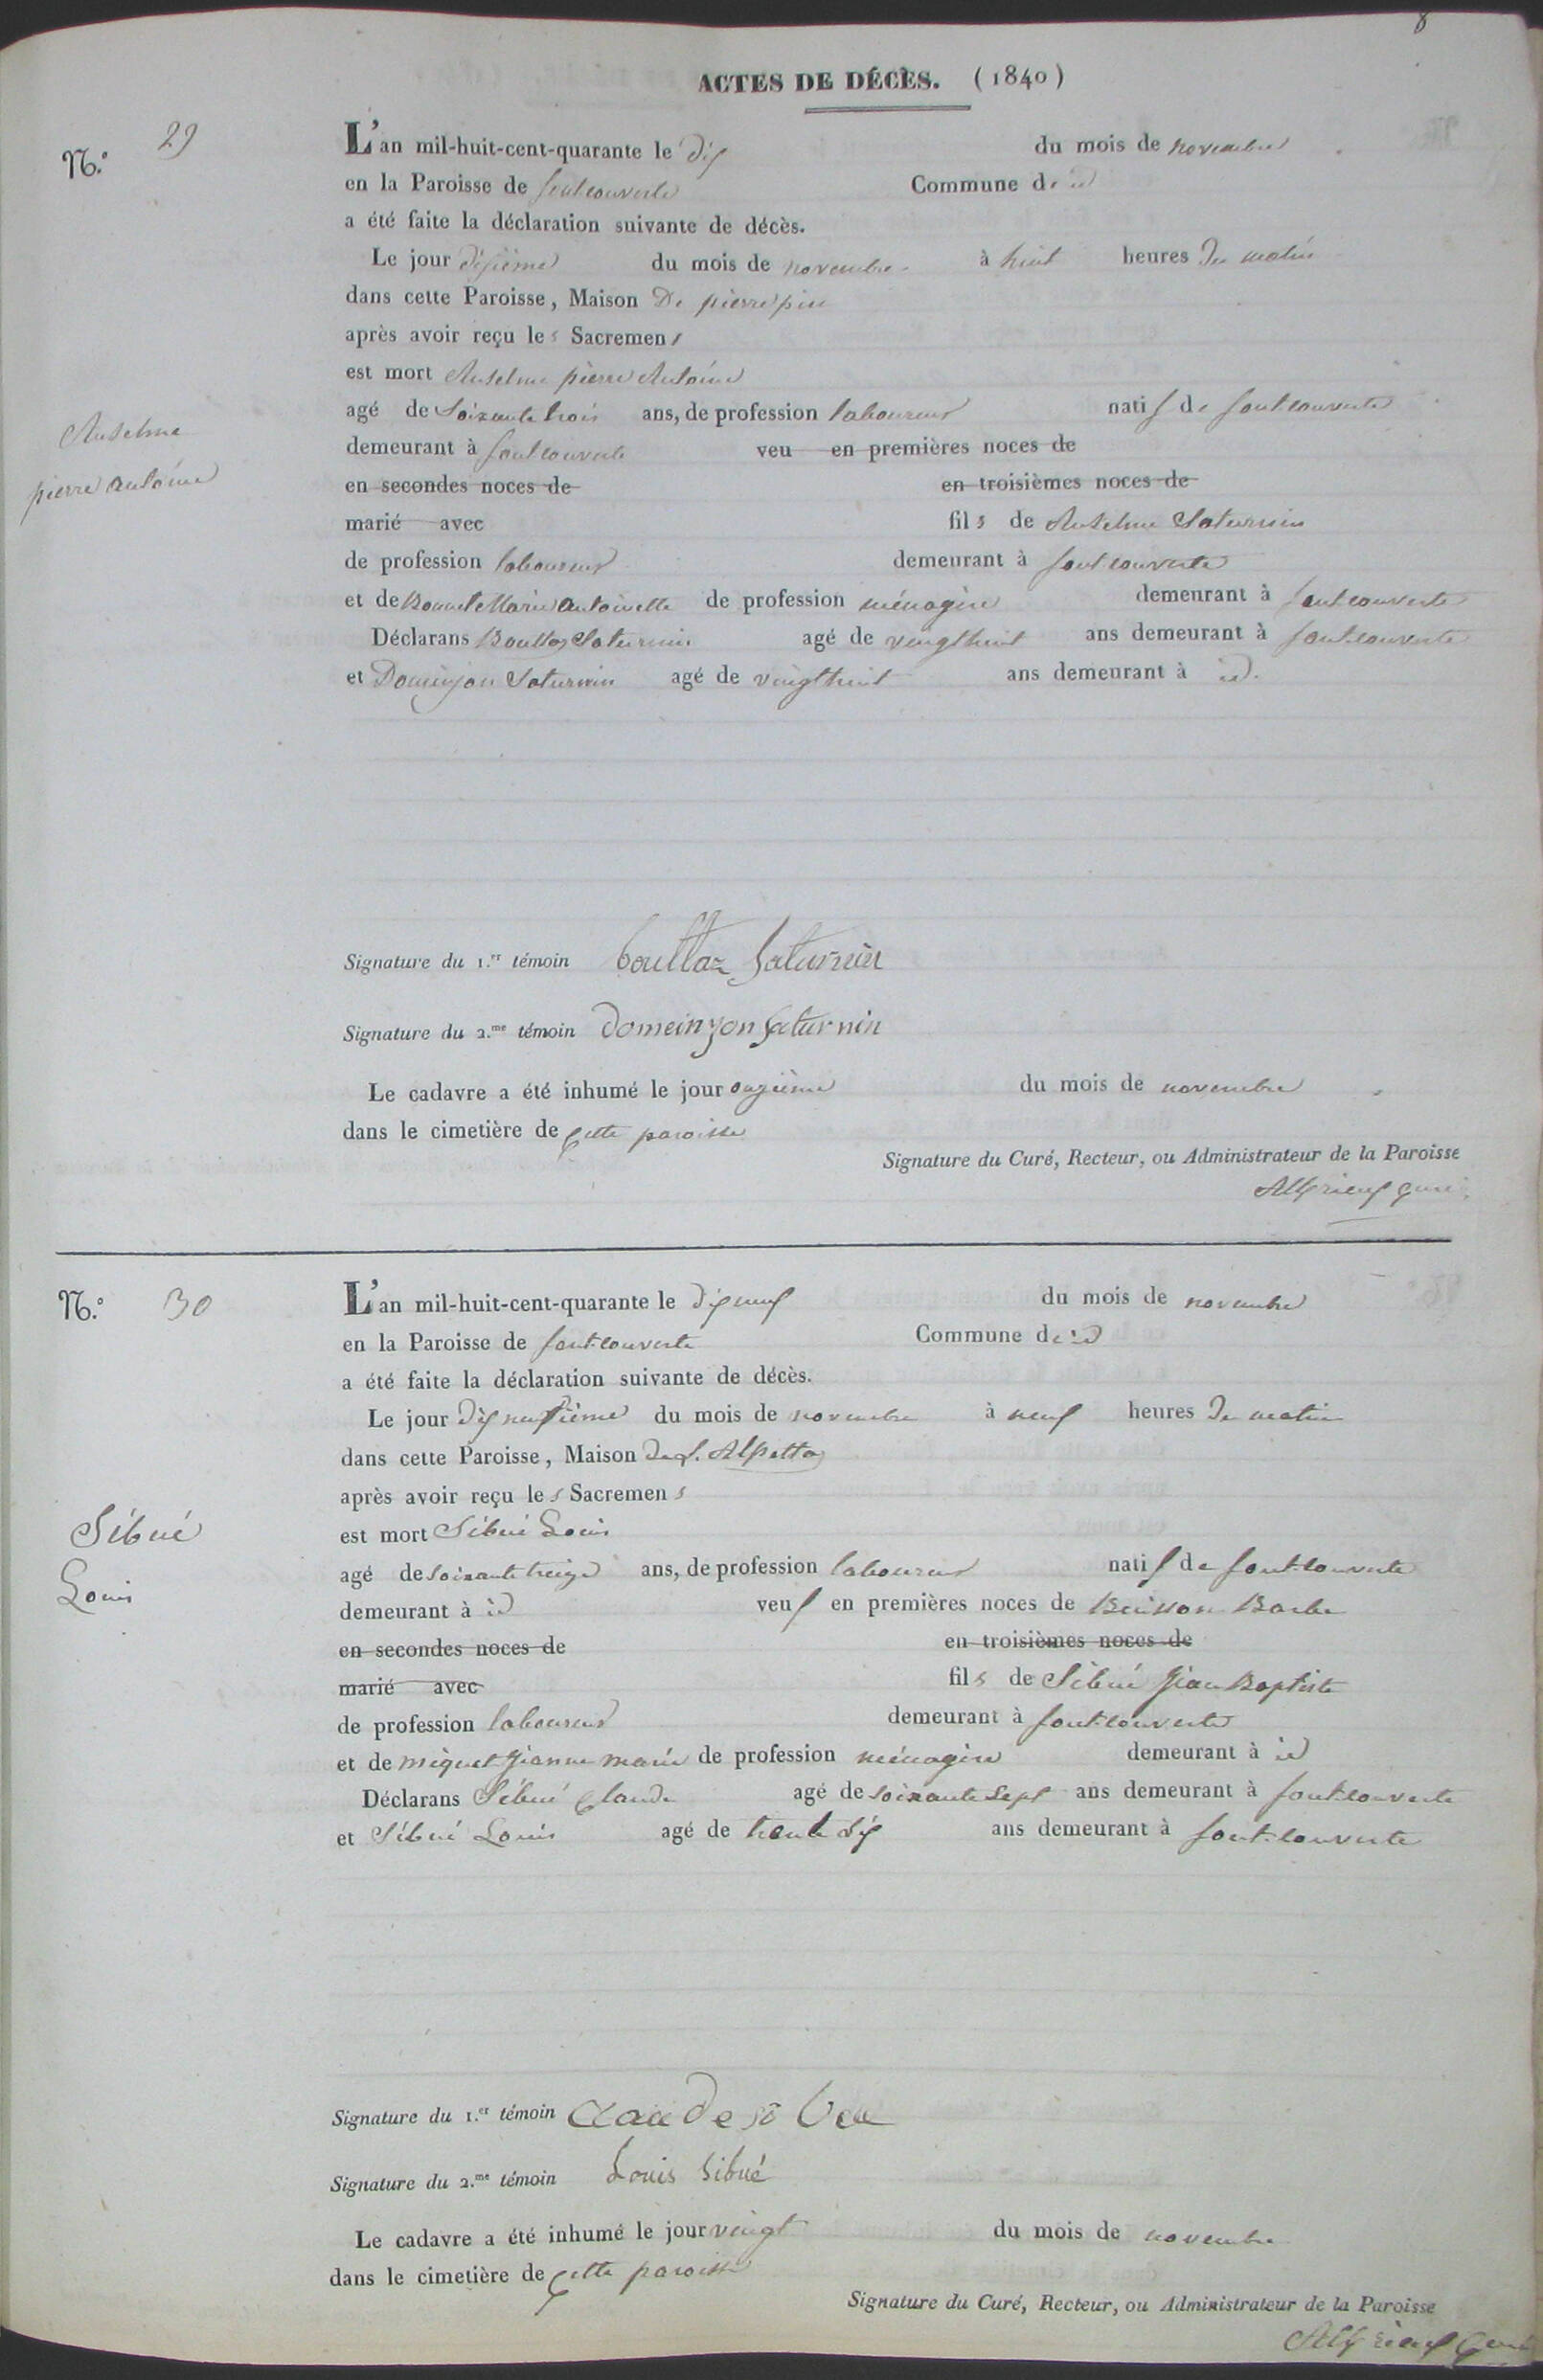 8
ACTES DE DÉCÈS. (1840)
N.º 29
L'an mil-huit-cent-quarante le dix du mois de novembre
en la Paroisse de fontcouverte Commune de id
a été faite la déclaration suivante de décès.
Le jour dixième du mois de novembre à huit heures du matin
dans cette Paroisse, Maison De pierre pin
après avoir reçu les Sacremens
est mort Anselme pierre Antoine
agé de Soixante trois ans, de profession laboureur natif de fontcouverte
Anselme
pierre antoine
demeurant à fontcouverte veu en premières noces de
en secondes noces de en troisièmes noces de
marié avec fils de Anselme Saturnin
de profession laboureur demeurant à fontcouverte
et de Bonnet Marie antoinette de profession ménagère demeurant à fontcouverte
Déclarans Bouttaz Saturnin agé de vingthuit ans demeurant à fontcouverte
et Domeinjon Saturnin agé de vingthuit ans demeurant à id.
Signature du 1.er témoin bouttaz Saturnin
Signature du 2.me témoin Domeinjon Saturnin
Le cadavre a été inhumé le jour onzième du mois de novembre
dans le cimetière de cette paroisse
Signature du Curé, Recteur, ou Administrateur de la Paroisse
curé
N.º 30
L'an mil-huit-cent-quarante le dix neuf du mois de novembre
en la Paroisse de font-couverte Commune de id
a été faite la déclaration suivante de décès.
Le jour dix neufième du mois de novembre à neuf heures du matin
dans cette Paroisse, Maison Alpettaz
après avoir reçu les Sacremens
est mort Sibué Louis
Sibué
Louis
agé de soixante treize ans, de profession laboureur natif de font-couverte
demeurant à id veuf en premières noces de Buisson Barbe
en secondes noces de en troisièmes noces de
marié avec fils de Sibué Jean Baptiste
de profession laboureur demeurant à font-couverte
et de miquet Jeanne marie de profession ménagère demeurant à id
Déclarans Sibué Claude agé de soixante sept ans demeurant à font-couverte
et Sibué Louis agé de trente dix ans demeurant à font-couverte
Signature du 1.er témoin Claude
Signature du 2.me témoin Louis Sibué
Le cadavre a été inhumé le jour vingt du mois de novembre
dans le cimetière de cette paroisse
Signature du Curé, Recteur, ou Administrateur de la Paroisse
curé